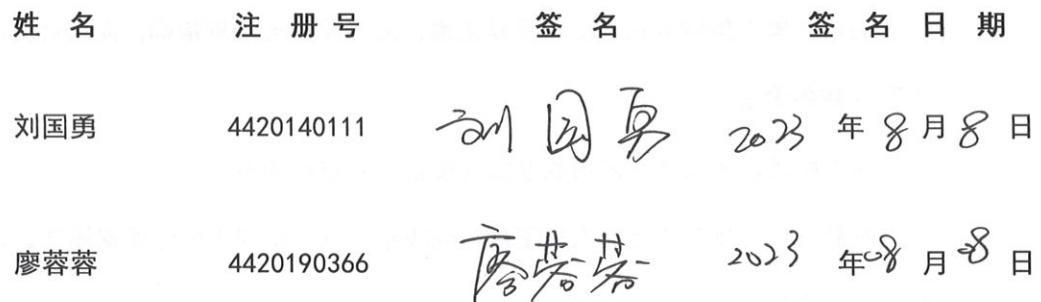 姓 名 注 册 号 签 名 签 名 日 期
刘国勇 4420140111 刘国勇 2023 年 8 月 8 日
廖蓉蓉 4420190366 廖蓉蓉 2023 年 08 月 08 日